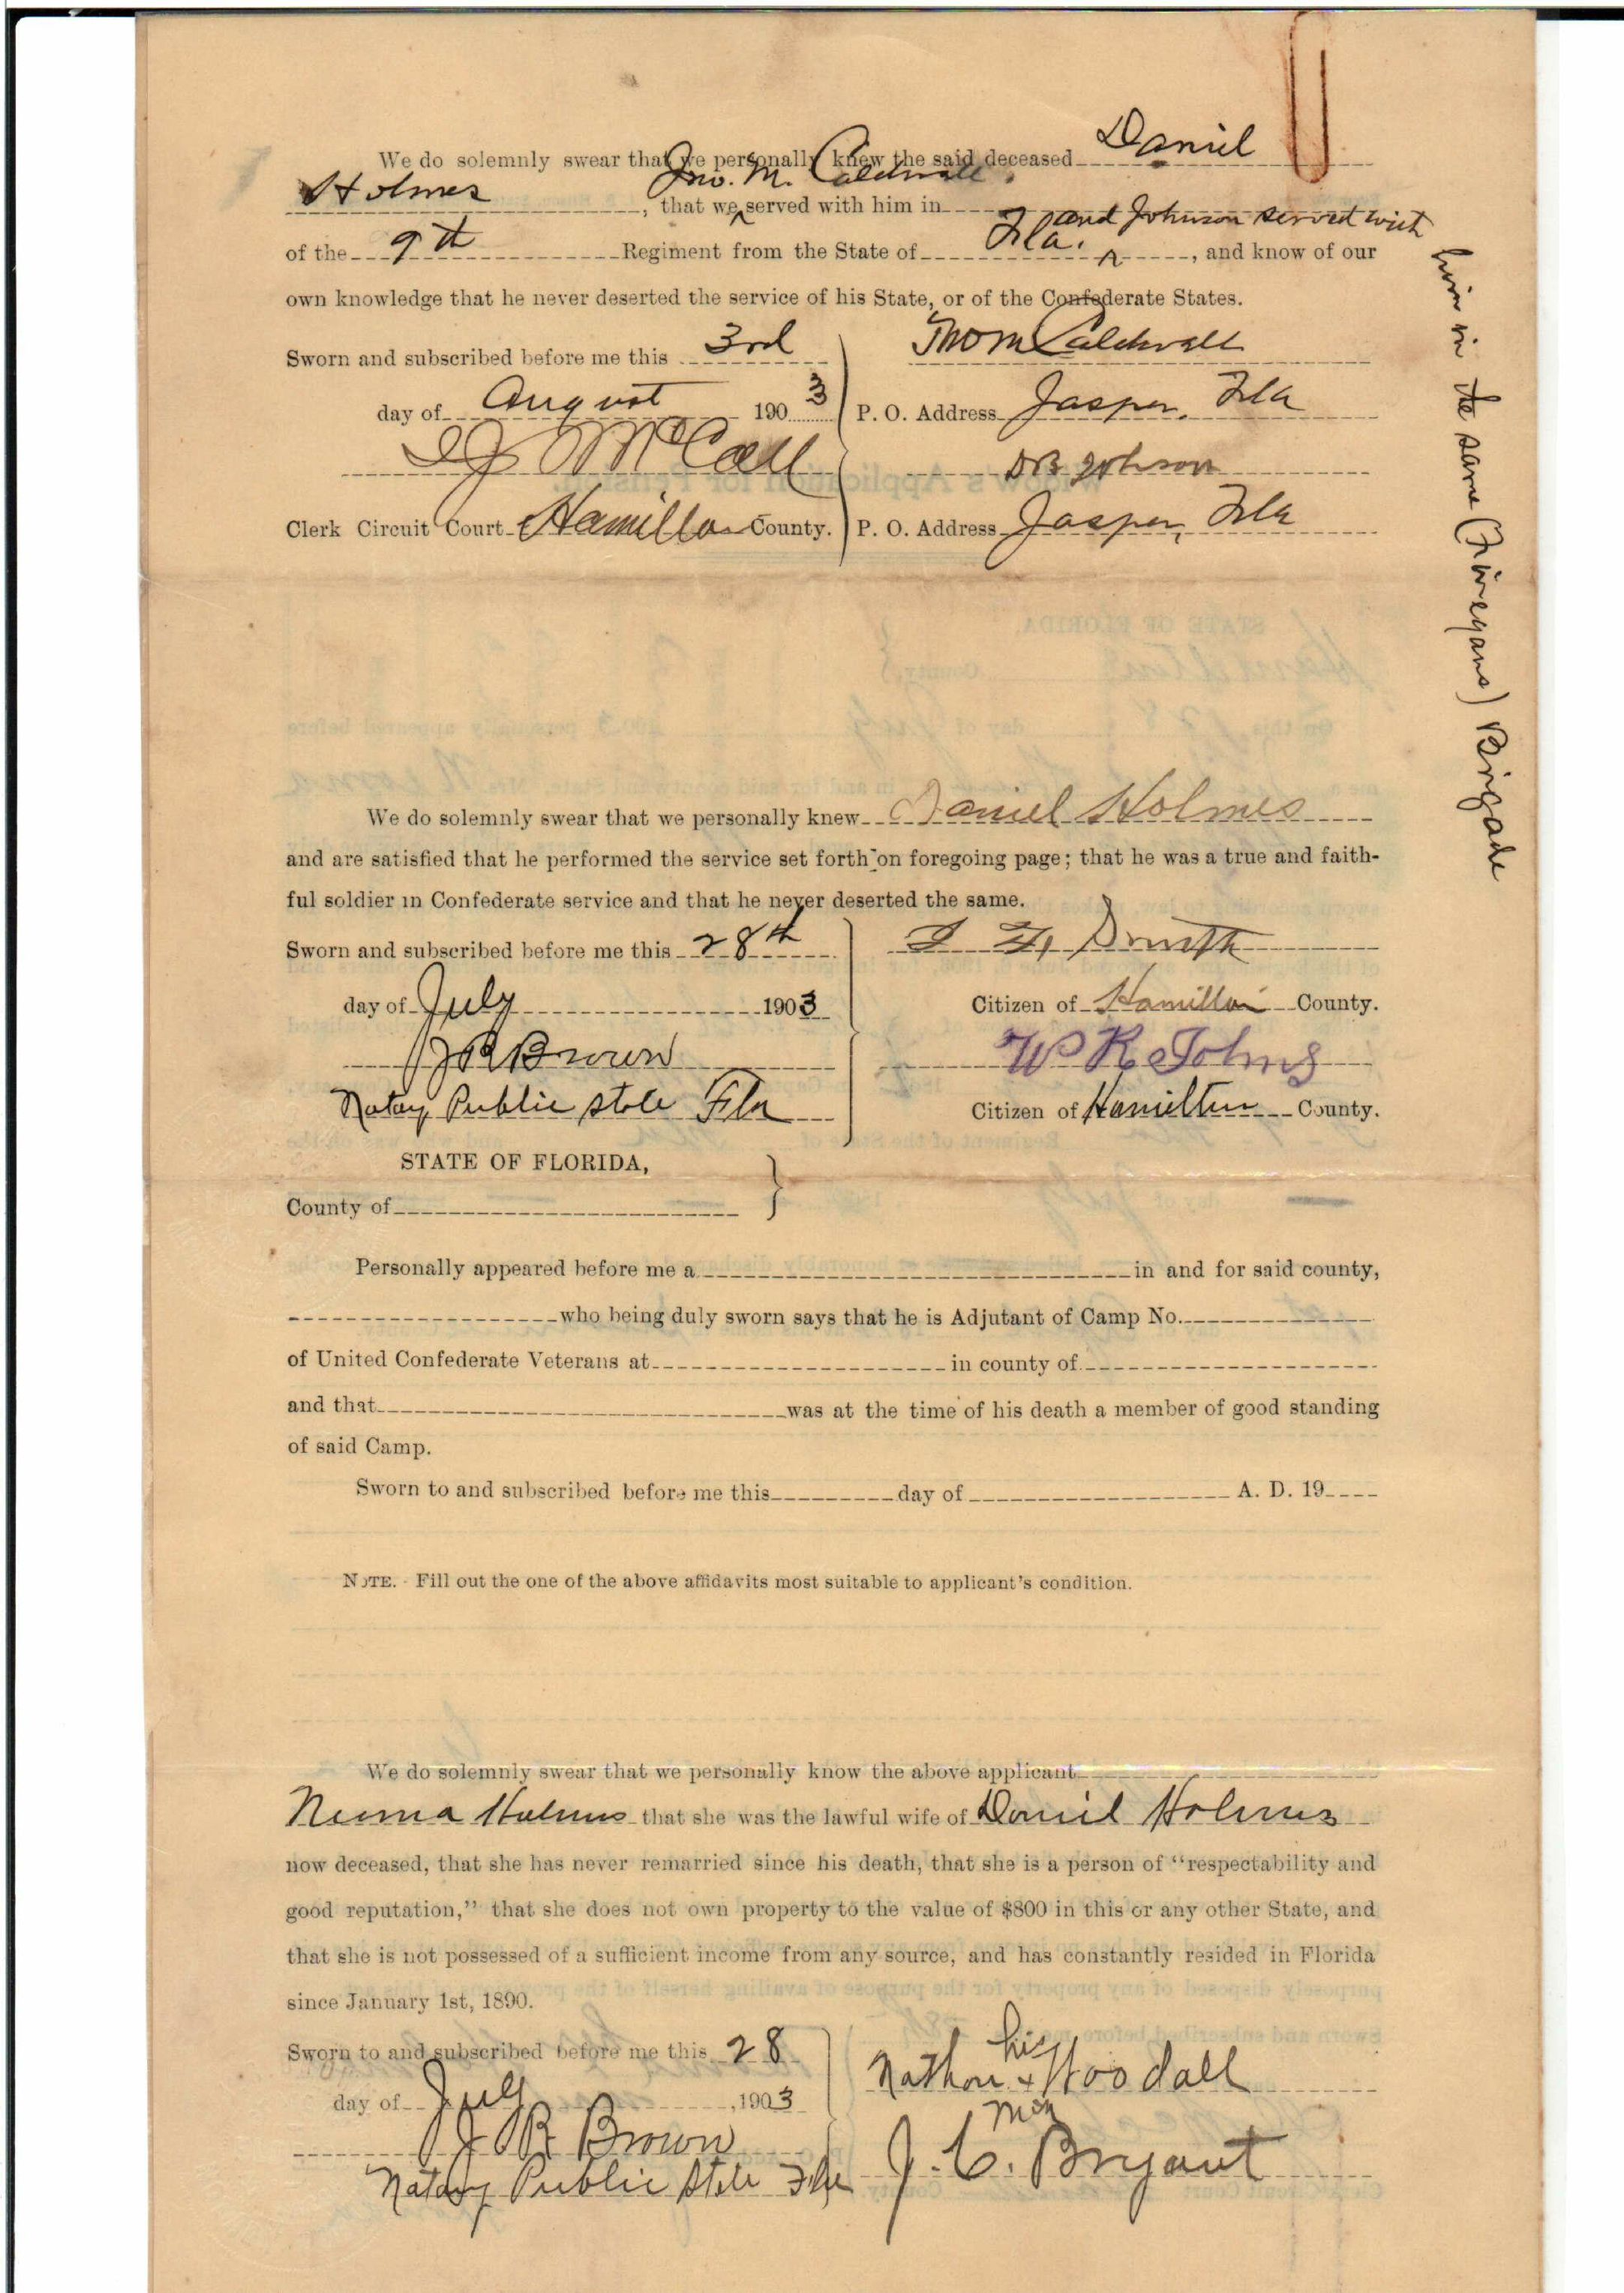 We do solemnly swear that we personally knew the said deceased Daniel
Jno. M. Caldwell
Holmes, that we ^ served with him in
and Johnson served with
of the 9th Regiment from the State of Fla. ^, and know of our
him in the same (Finegans) Brigade
own knowledge that he never deserted the service of his State, or of the Confederate States.
Sworn and subscribed before me this 3rd
day of August 1903
McCall
Clerk Circuit Court Hamilton County.
Caldwell
P. O. Address Jasper, Fla
DB Johnson
P. O. Address Jasper, Fla
We do solemnly swear that we personally knew Daniel Holmes
and are satisfied that he performed the service set forth on foregoing page; that he was a true and faith-
ful soldier in Confederate service and that he never deserted the same.
Sworn and subscribed before me this 28th
day of July 1903
J R Brown
Notary Public State Fla
Smith
Citizen of Hamilton County.
W R Johns
Citizen of Hamilton County.
STATE OF FLORIDA,
County of
Personally appeared before me a in and for said county,
who being duly sworn says that he is Adjutant of Camp No.
of United Confederate Veterans at in county of
and that was at the time of his death a member of good standing
of said Camp.
Sworn to and subscribed before me this day of A. D. 19
NOTE. Fill out the one of the above affidavits most suitable to applicant's condition.
We do solemnly swear that we personally know the above applicant
Holmes that she was the lawful wife of Daniel Holmes
now deceased, that she has never remarried since his death, that she is a person of "respectability and
good reputation," that she does not own property to the value of $800 in this or any other State, and
that she is not possessed of a sufficient income from any source, and has constantly resided in Florida
since January 1st, 1890.
Sworn to and subscribed before me this 28
day of July, 1903
J R Brown
Notary Public State Fla
his
Nathan x Woodall
J. C. Bryant